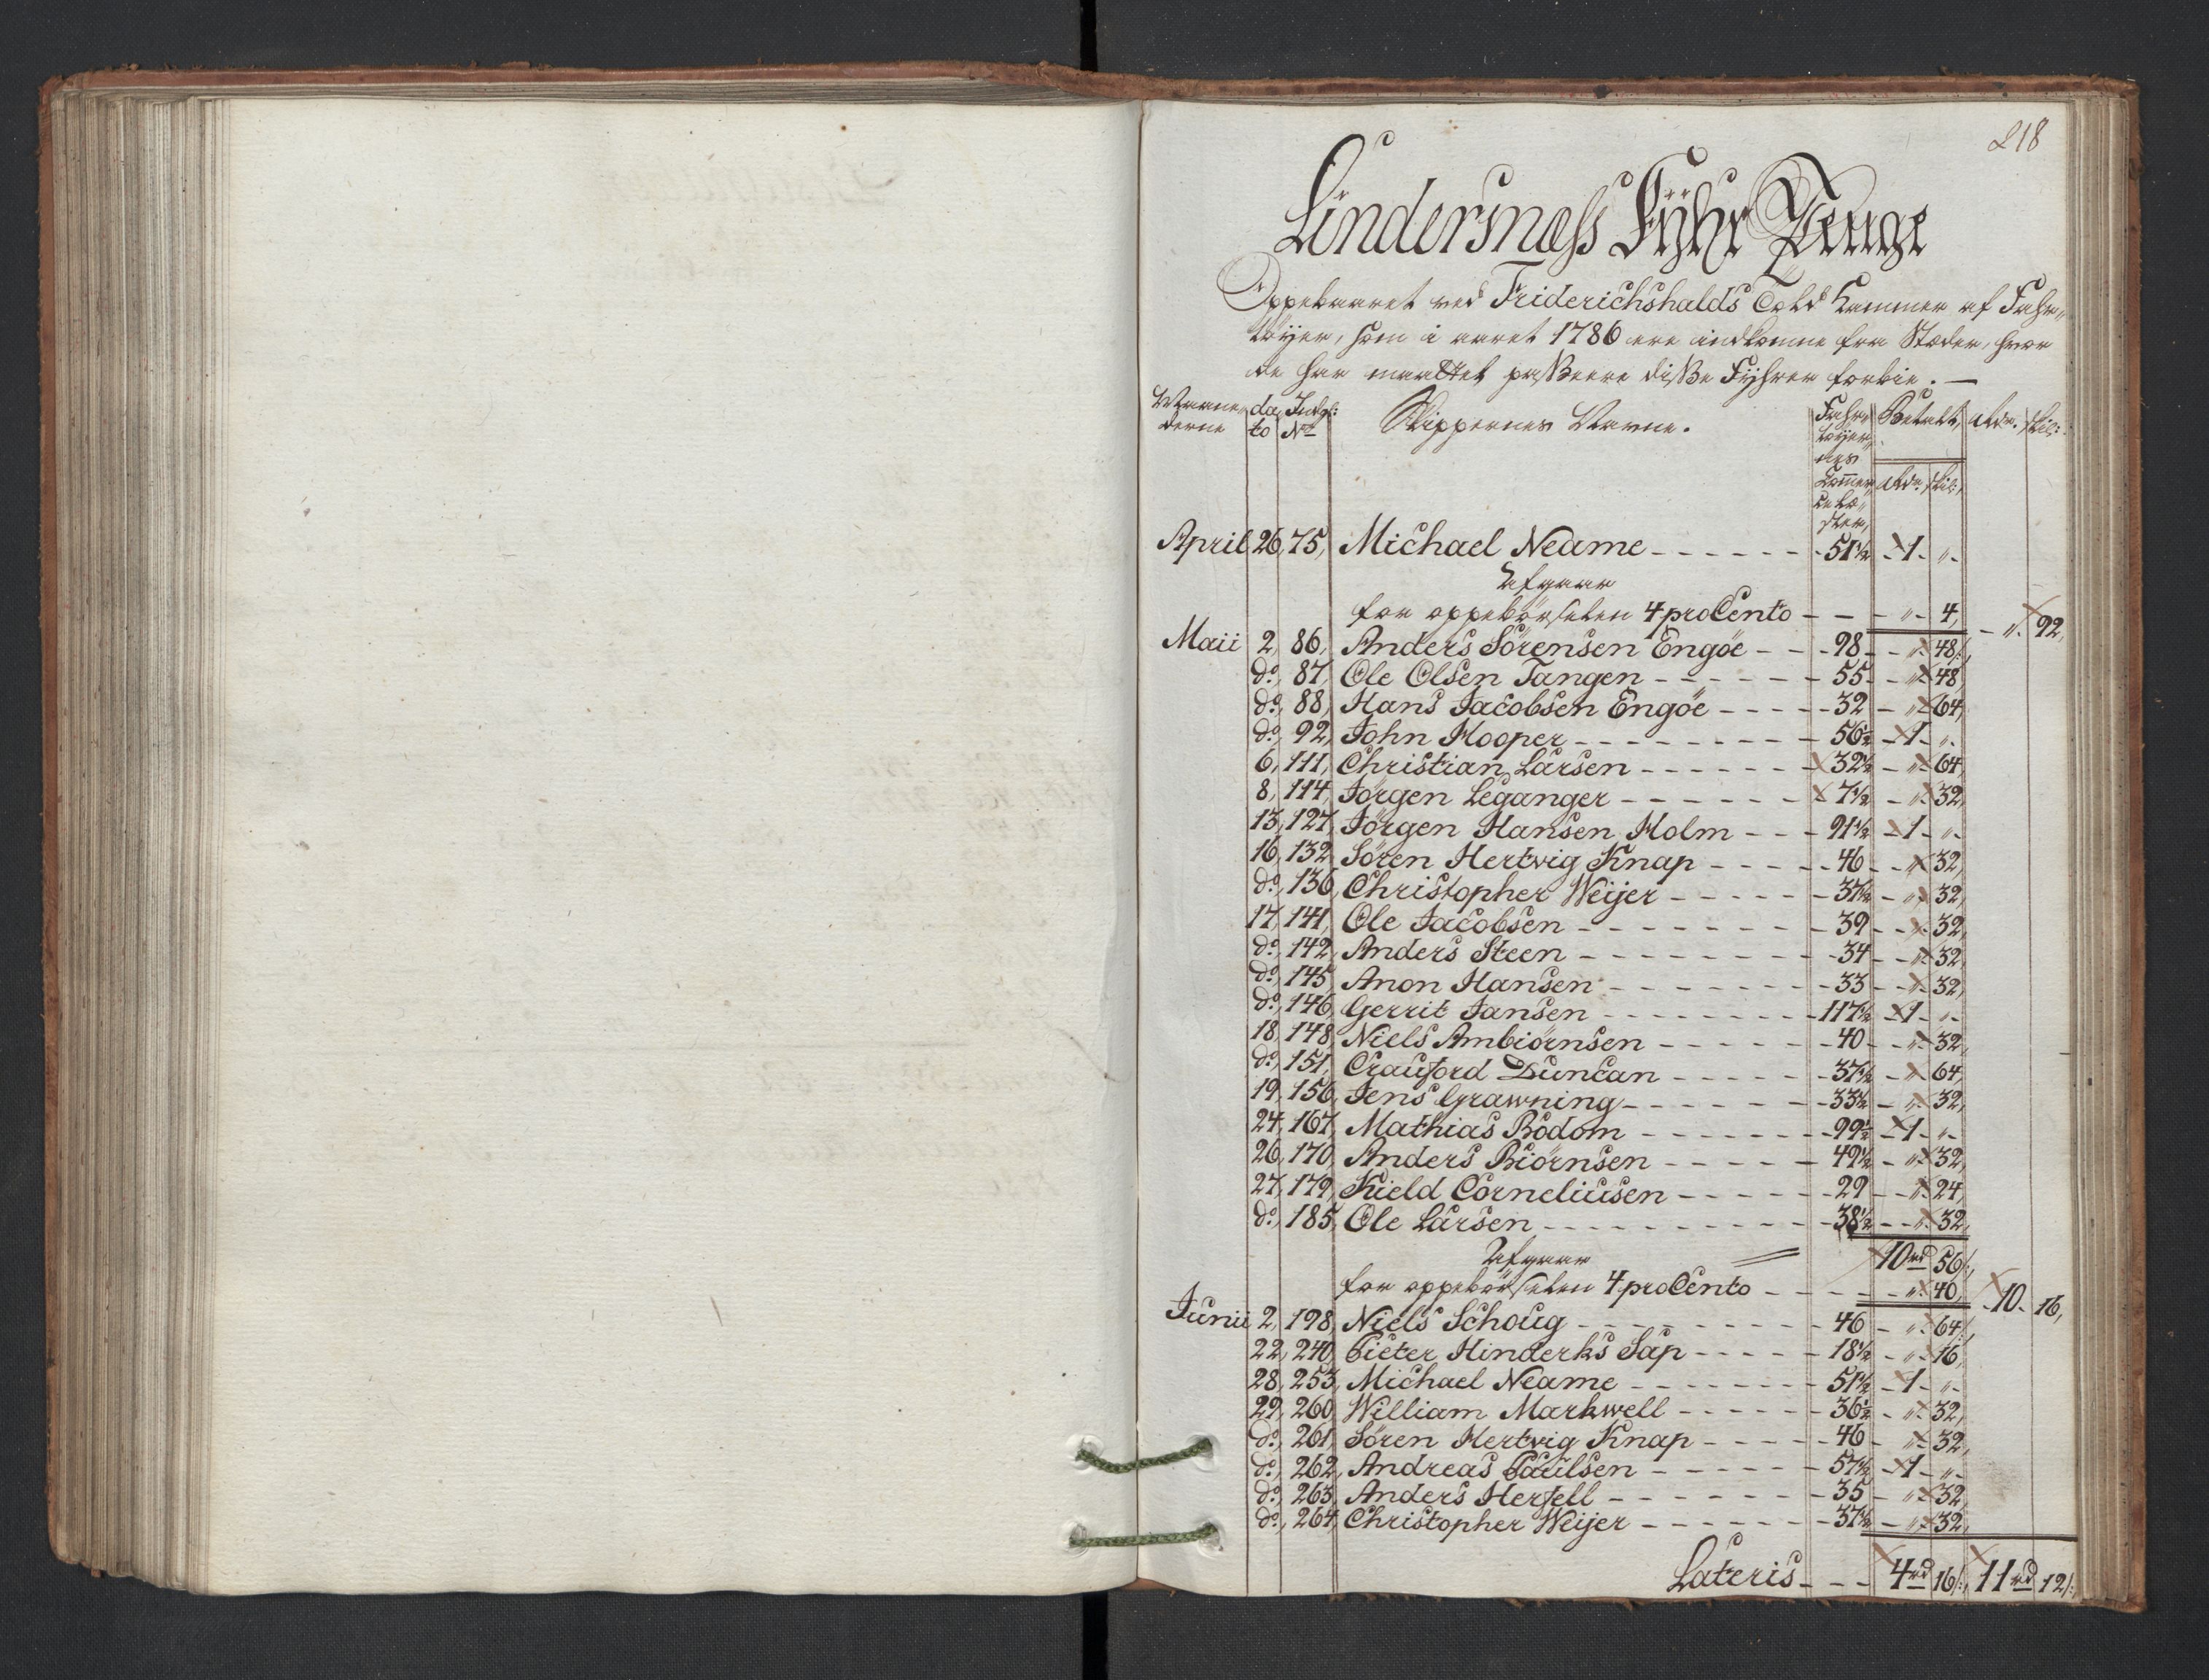 218
Lindersness Fÿhr Penge
Oppebaaret ved Friderichshalds Told Kammer af Fahr„
töÿer, som i aaret 1786 ere indkomne fra Stæder, hvor
de har maattet passeere disse Fÿhrer forbie. —
Maane„ da Indg: Skippernes Navne. Fahr„ Betalt, rdr. skil:
derne to No töÿer„
nes
Commer„ rdr. skil:
ce Læ„
ster,
April 26, 75, Michael Neame - - - - - - 51½ - 1 - „ -
Afgaar
for oppebörselen 4 pro Cento - - - „ - 4, - „ - 92,
Maii 2, 86, Anders Sörensen Engöe - - - 98 - - „ - 48/:,
do, 87, Ole Olsen Tangen - - - - - - 55 - - „ - 48,
do, 88, Hans Jacobsen Engöe - - - - - 32 - „ - 64,
do, 92, John Hooper - - - - - - - - 56½ - 1 - „ -
6, 111, Christian Larsen - - - - - - 32½ - „ - 64,
8, 114, Jörgen Leganger - - - - - - 7½ - „ - 32,
13, 127, Jörgen Hansen Holm - - - 91½ - 1 - „ -
16, 132, Sören Hertvig Knap - - - - - 46 - - „ - 32,
do, 136, Christopher Weÿer - - - - - 37½ - „ - 32,
17, 141, Ole Jacobsen - - - - - - - - 39 - - „ - 32,
do, 142, Anders Steen - - - - - - - - 34 - - „ - 32,
do, 145, Anon Hansen - - - - - - - - 33 - - „ - 32,
do, 146, Gerrit Jansen - - - - - - - - 117½ - 1 - „ -
18, 148, Niels Ambiörnsen - - - - - - 40 - - „ - 32,
do, 151, Crauford Duncan - - - - - - 37½ - „ - 64,
19, 156, Jens Grawning - - - - - - - 33½ - „ - 32,
24, 167, Mathias Bodom - - - - - - - 99½ - 1 - „ -
26, 170, Anders Biörnsen - - - - - 49½ - „ - 32,
27, 179, Kield Corneliusen - - - - - - 29 - - „ - 24,
do, 185, Ole Larsen - - - - - - - - - 38½ - - „ - 32,
Afgaar 10 rd 56/:,
for oppebörselen 4 pro Cento - - - - „ - 40, - 10 - 16,
Junii 2, 198, Niels Schoug - - - - - - - - 46 - „ - 64/:,
22, 240, Pieter Hinderks Sap - - - - - 18½ - „ - 16,
28, 253, Michael Neame - - - - - - - 51½ - 1 - „ -
29, 260, William Markwell - - - - - - 36½ - „ - 32,
do, 261, Sören Hertvig Knap - - - - - 46 - „ - 32,
do, 262, Andreas Paulsen - - - - - - 57½ - 1 - „ -
do, 263, Anders Herfell - - - - - - - 35 - „ - 32,
do, 264, Christopher Weÿer - - - - - - 37½ - „ - 32,
Lateris - - - 4 rd 16/:, 11 rd 12/: